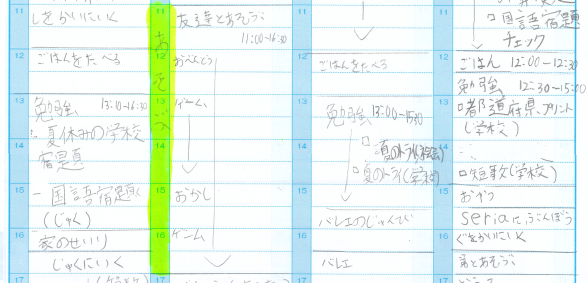 11
しをかいにいく
12
ごはんをたべる
13
勉強 13:10-16:30
・夏休みの学校
宿題
14
15
- 国語宿題
(じゅく)
16
家のせいり
じゅくにいく
17
11
友達とあそぶ
11:00-16:30
あそぶ
12
おべんとう
13
ゲーム
14
15
おかし
16
ゲーム
17
11
12
ごはんをたべる
13
勉強 13:00-15:00
14
□夏のトライ
□夏のトライ(学校)
15
バレエのじゅんび
16
バレエ
17
11
□国語宿題
チェック
12
ごはん 12:00-12:30
勉強 12:30-15:00
13
□都道府県プリント
(学校)
14
□短歌(学校)
15
おやつ
seriaに
16
ぐをかいにいく
弟とあそぶ
17